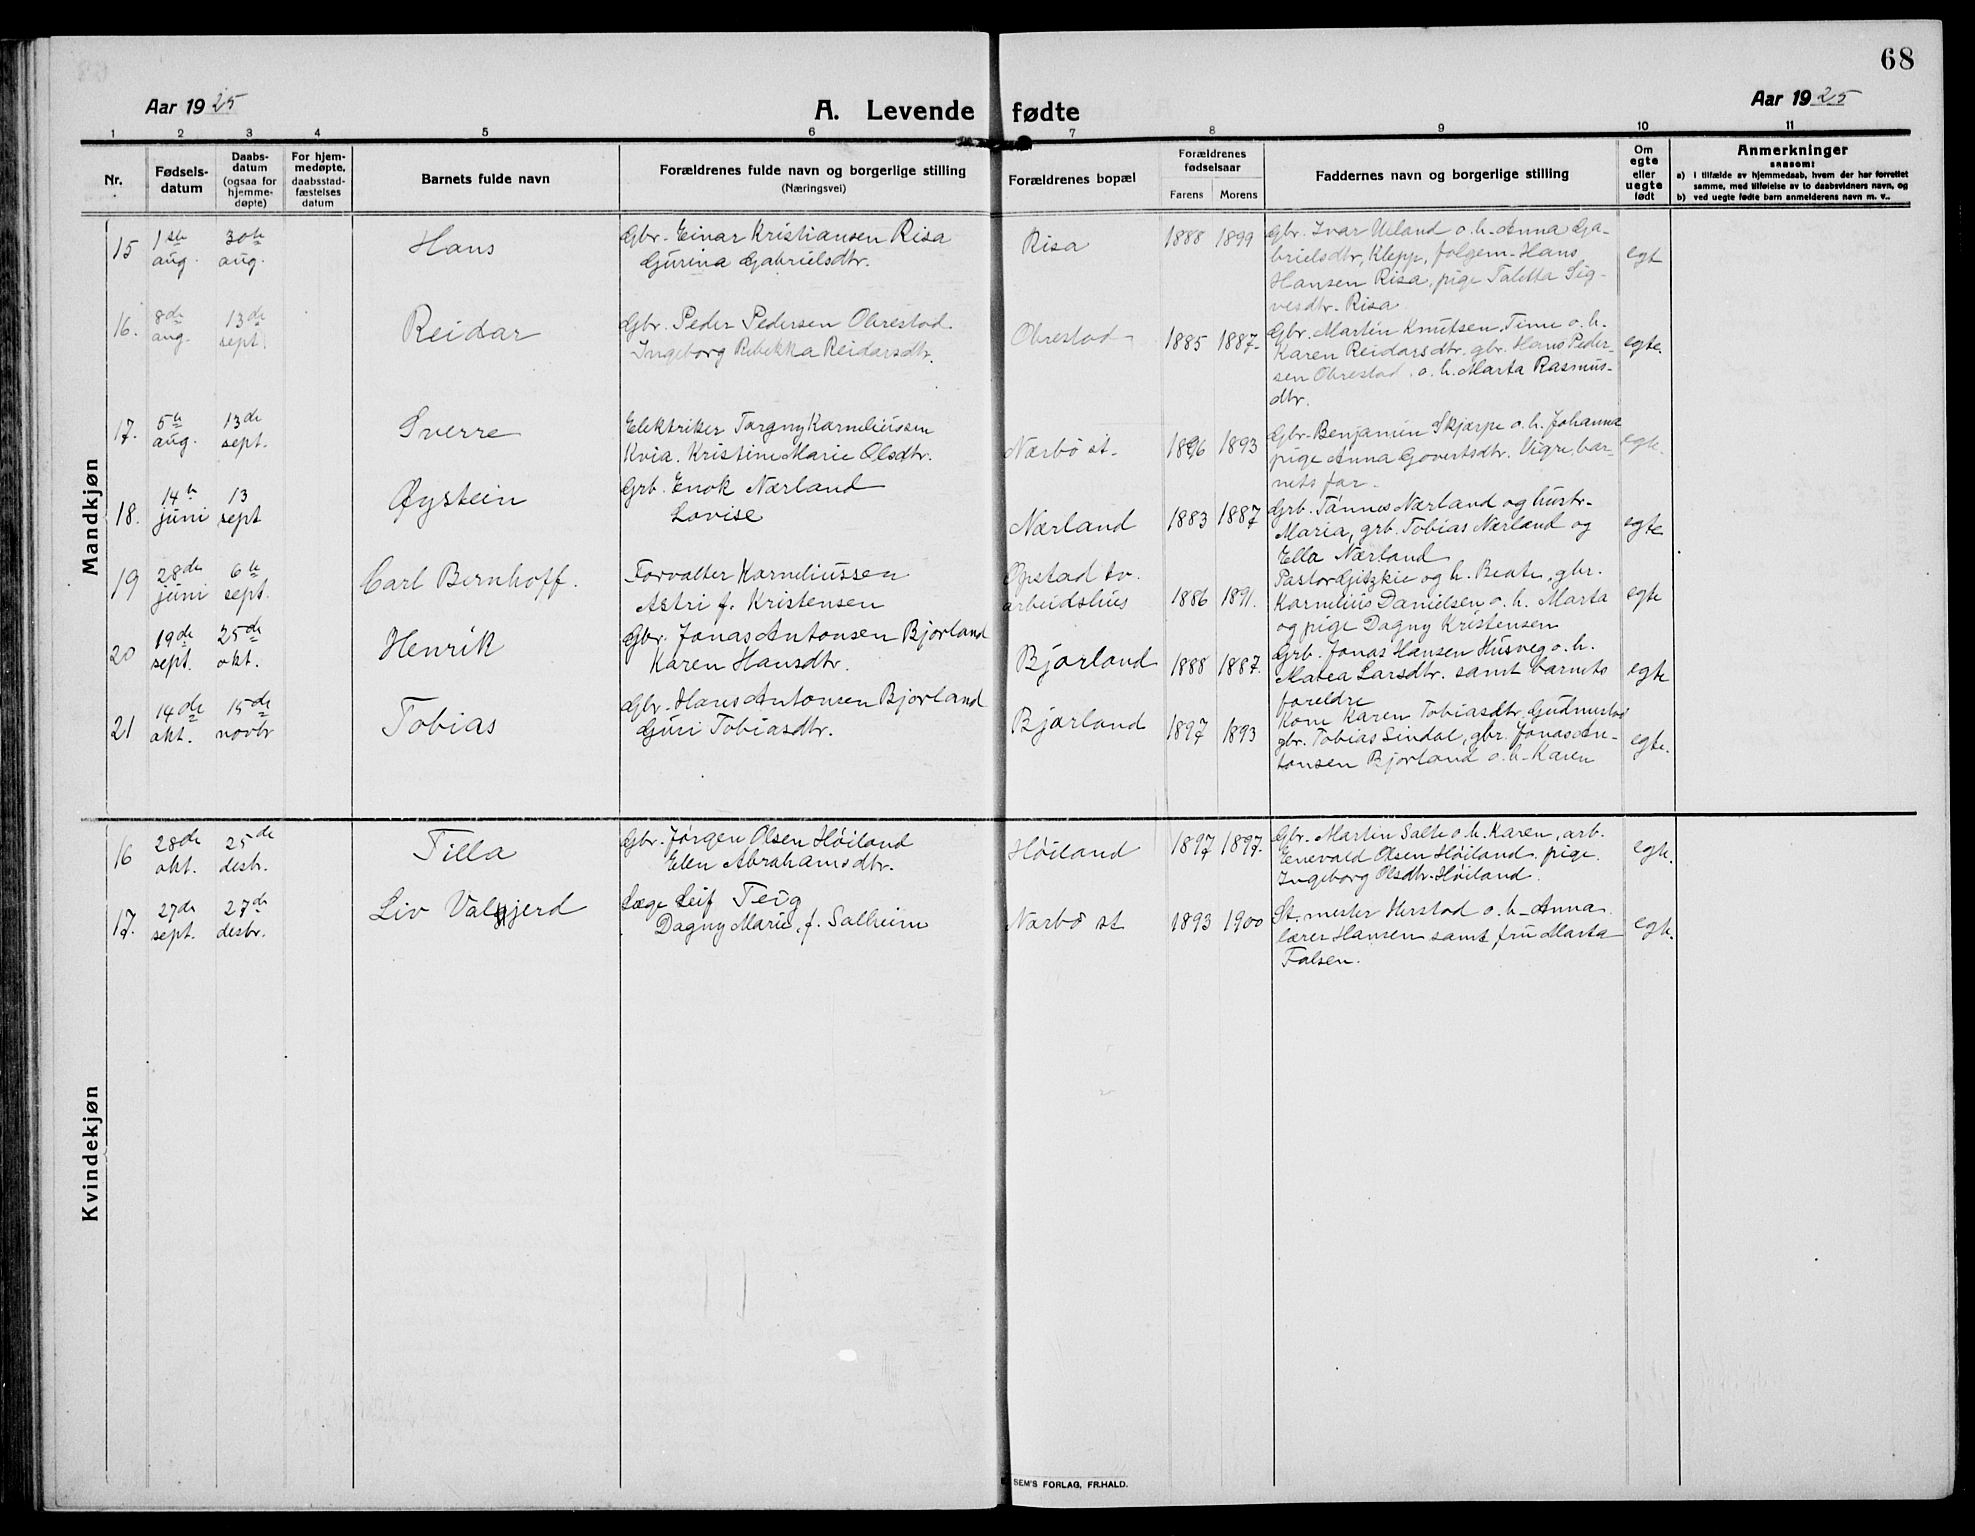 68
Aar 1925
A. Levende fødte
Aar 1925
1 2 3 4 5 6 7 8 9 10 11
Nr.
Fødsels-
datum
Daabs-
datum
(ogsaa for
hjemme-
døpte)
For hjem-
medøpte,
daabsstad-
fæstelses
datum
Barnets fulde navn
Forældrenes fulde navn og borgerlige stilling
(Næringsvei)
Forældrenes bopæl
Forældrenes
fødselsaar
Farens Morens
Faddernes navn og borgerlige stilling
Om
egte
eller
uegte
født
Anmerkninger
saasom:
a) i tilfælde av hjemmedaab, hvem der har forrettet
samme, med tilføielse av to daabsvidners navn, og
b) ved uegte fødte barn anmelderens navn m. v..
Mandkjøn
15
1ste
aug.
30te
aug.
Hans
Gbr. Einar Kristiansen Risa
Gurina Gabrielsdtr.
Risa
1888 1899
Gbr. Ivar Ueland o. h. Anna Ga-
brielsdtr, Klepp, folgem. Hans
Hansen Risa, pige Taletta Sig-
vesdtr. Risa
egt
16.
8de
aug.
13de
sept.
Reidar
Gbr. Peder Pedersen Obrestad.
Ingeborg Rebekka Reidarsdtr.
Obrestad
1885 1887.
Gbr. Martin Knutsen, Time o. h.
Karen Reidarsdtr. gbr. Hans Peder-
sen Obrestad. o. h. Marta Rasmus-
dtr.
egte.
17.
5te
aug.
13de
sept.
Sverre
Elektriker Torgny Korneliussen
Kvia. Kristine Marie Olsdtr.
Nærbö st.
1896 1893
Gbr. Benjamin Skjærpe o. h. Johanna
pige Anna Govertsdtr. Vigre, bar-
nets far.
egte.
18.
14de
juni
13
sept
Øystein
Grb. Enok Nærland
Lovise
Nærland
1883 1887
Grb. Tönnes Nærland og hustr.
Maria, grb. Tobias Nærland og
Ella Nærland
egte
19
28de
juni
6te
sept.
Carl Bernhoff.
Forvalter Korneliussen
Astri f. Kristensen
Opstad tv.
arbeidshus
1886 1891.
Pastor Gitzkie og h. Beate, gbr.
Kornelius Danielsen o. h. Marta
og pige Dagny Kristensen
egte
20
19de
sept.
25de
okt.
Henrik
Gbr. Jonas Antonsen Bjorland
Karen Hansdtr.
Bjorland
1888 1887.
Grb. Jonas Hansen Husveg o. h.
Marea Larsdtr. samt barnets
foreldre
egte
21
14de
okt.
15de
novbr
Tobias
Gbr. Hans Antonsen Bjorland
Guri Tobiasdtr.
Bjorland
1897 1893
Kone Karen Tobiasdtr. Gudmestad
gbr. Tobias Sindal, gbr. Jonas An-
tonsen Bjorland o. h. Karen
egte.
Kvindekjøn
16
28de
okt.
25de
desbr.
Tilla
Gbr. Jørgen Olsen Höiland
Elen Abrahamsdtr.
Höiland
1897 1897.
Gbr. Martin Salte o. h. Karen, arb.
Enevald Olsen Höiland. pige.
Ingeborg Olsdtr. Höiland.
egte.
17.
27de
sept.
27de
desbr.
Liv Valgjerd
Læge Leif Teig
Dagny Marie, f. Salheim
Nærbö st
1893 1900
St. mester Herstad o. h. Anna.
lærer Hansen samt fru Marta
Falsen.
egte.
SEM'S FORLAG, FR.HALD.